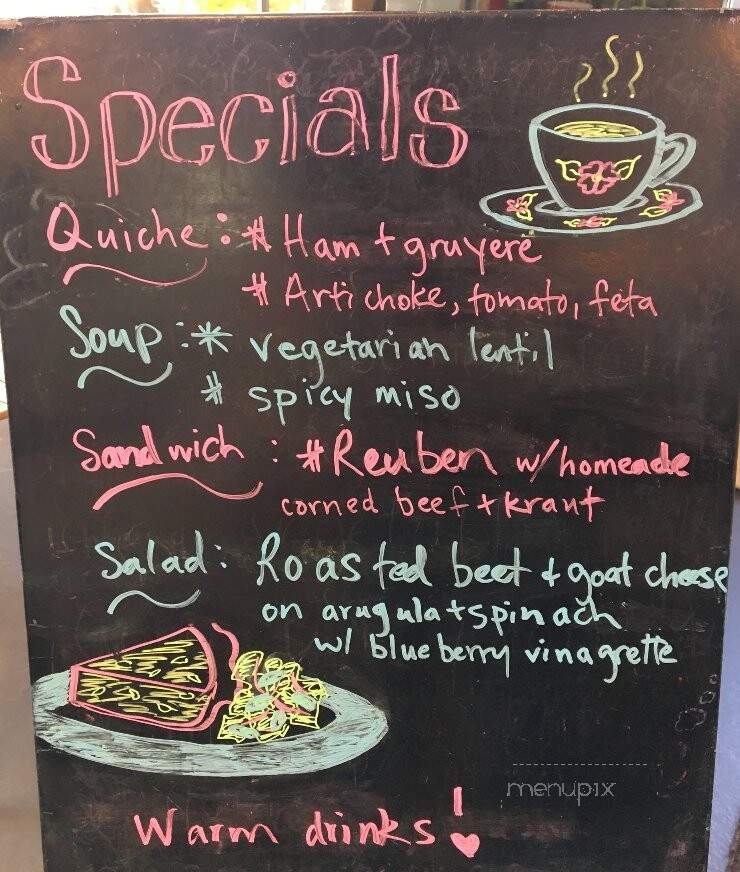 Specials
Quiche: * Ham + gruyere
* Artichoke, tomato, feta
Soup: * vegetarian lentil
* spicy miso
Sandwich: * Reuben w/homeade
corned beef + kraut
Salad: Roasted beet & goat cheese
on arugula + spinach
w/ blueberry vinagrette
menupix
Warm drinks!